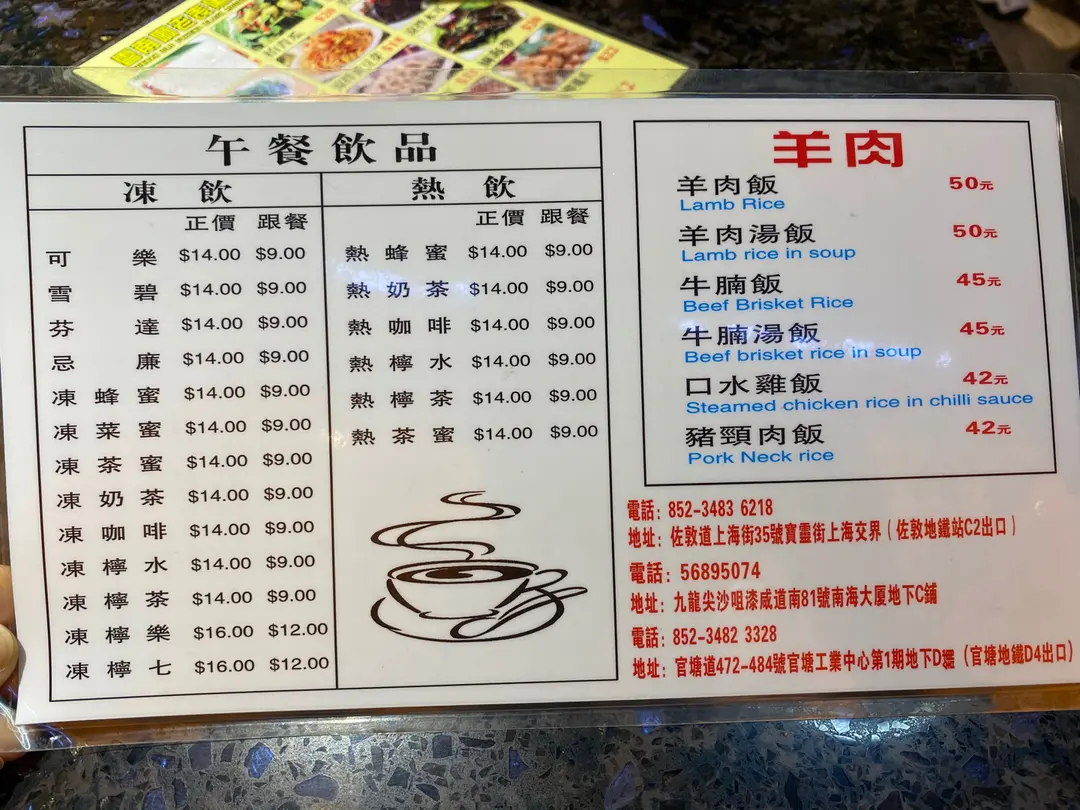 午餐飲品
凍飲
正價 跟餐
可樂 $14.00 $9.00
雪碧 $14.00 $9.00
芬達 $14.00 $9.00
忌廉 $14.00 $9.00
凍蜂蜜 $14.00 $9.00
凍菜蜜 $14.00 $9.00
凍茶蜜 $14.00 $9.00
凍奶茶 $14.00 $9.00
凍咖啡 $14.00 $9.00
凍檸水 $14.00 $9.00
凍檸茶 $14.00 $9.00
凍檸樂 $16.00 $12.00
凍檸七 $16.00 $12.00
熱飲
正價 跟餐
熱蜂蜜 $14.00 $9.00
熱奶茶 $14.00 $9.00
熱咖啡 $14.00 $9.00
熱檸水 $14.00 $9.00
熱檸茶 $14.00 $9.00
熱茶蜜 $14.00 $9.00
羊肉
羊肉飯 50元
Lamb Rice
羊肉湯飯 50元
Lamb rice in soup
牛腩飯 45元
Beef Brisket Rice
牛腩湯飯 45元
Beef brisket rice in soup
口水雞飯 42元
Steamed chicken rice in chilli sauce
豬頸肉飯 42元
Pork Neck rice
電話：852-3483 6218
地址：佐敦道上海街35號寶靈街上海交界（佐敦地鐵站C2出口）
電話：56895074
地址：九龍尖沙咀漆咸道南81號南海大厦地下C舖
電話：852-3482 3328
地址：官塘道472-484號官塘工業中心第1期地下D（官塘地鐵D4出口）